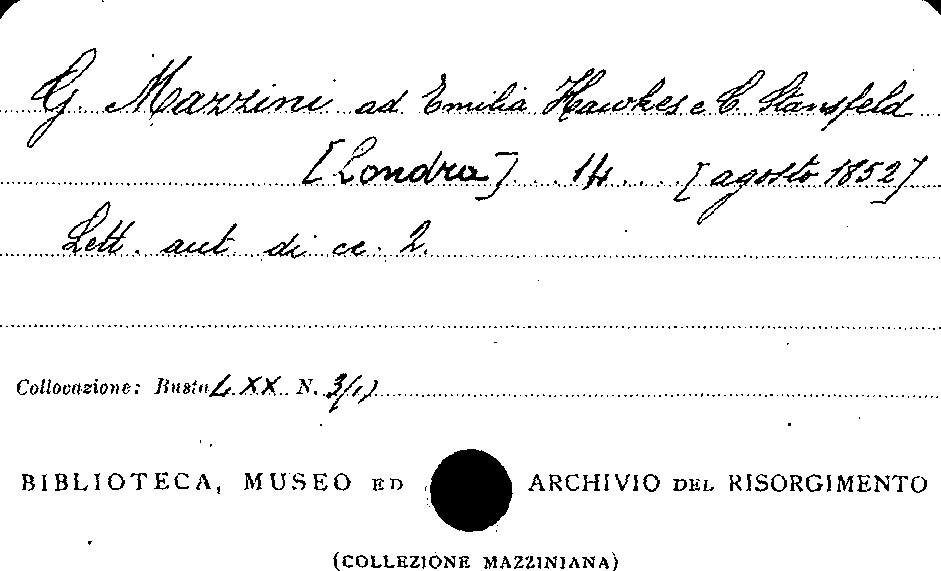 G. Mazzini ad Emilia Hawkes e C. Stansfeld
[Londra] 14 [agosto 1852]
Lett. aut. di cc. 2.
Collocazione: Busta LXX N. 3/1)
BIBLIOTECA, MUSEO ED ARCHIVIO DEL RISORGIMENTO
(COLLEZIONE MAZZINIANA)